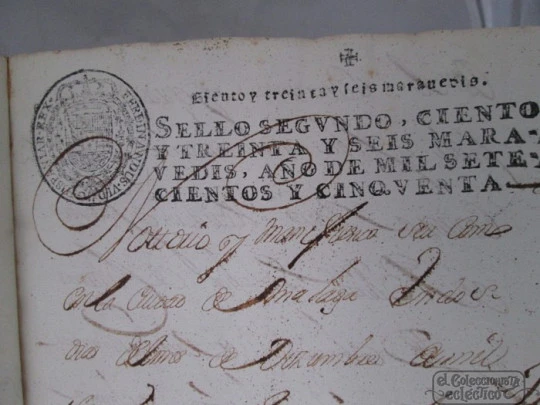 Ciento y treinta y seis maravedis.
SELLO SEGVNDO, CIENTO
Y TREINTA Y SEIS MARA-
VEDIS, AÑO DE MIL SETE-
CIENTOS Y CINQVENTA
FERDINANDUS VI D
HISP REX
Notorio y manifiesto sea como
en la Ciudad de Malaga en dose
dias del mes de Diziembre de mil
el Coleccionista
ecléctico